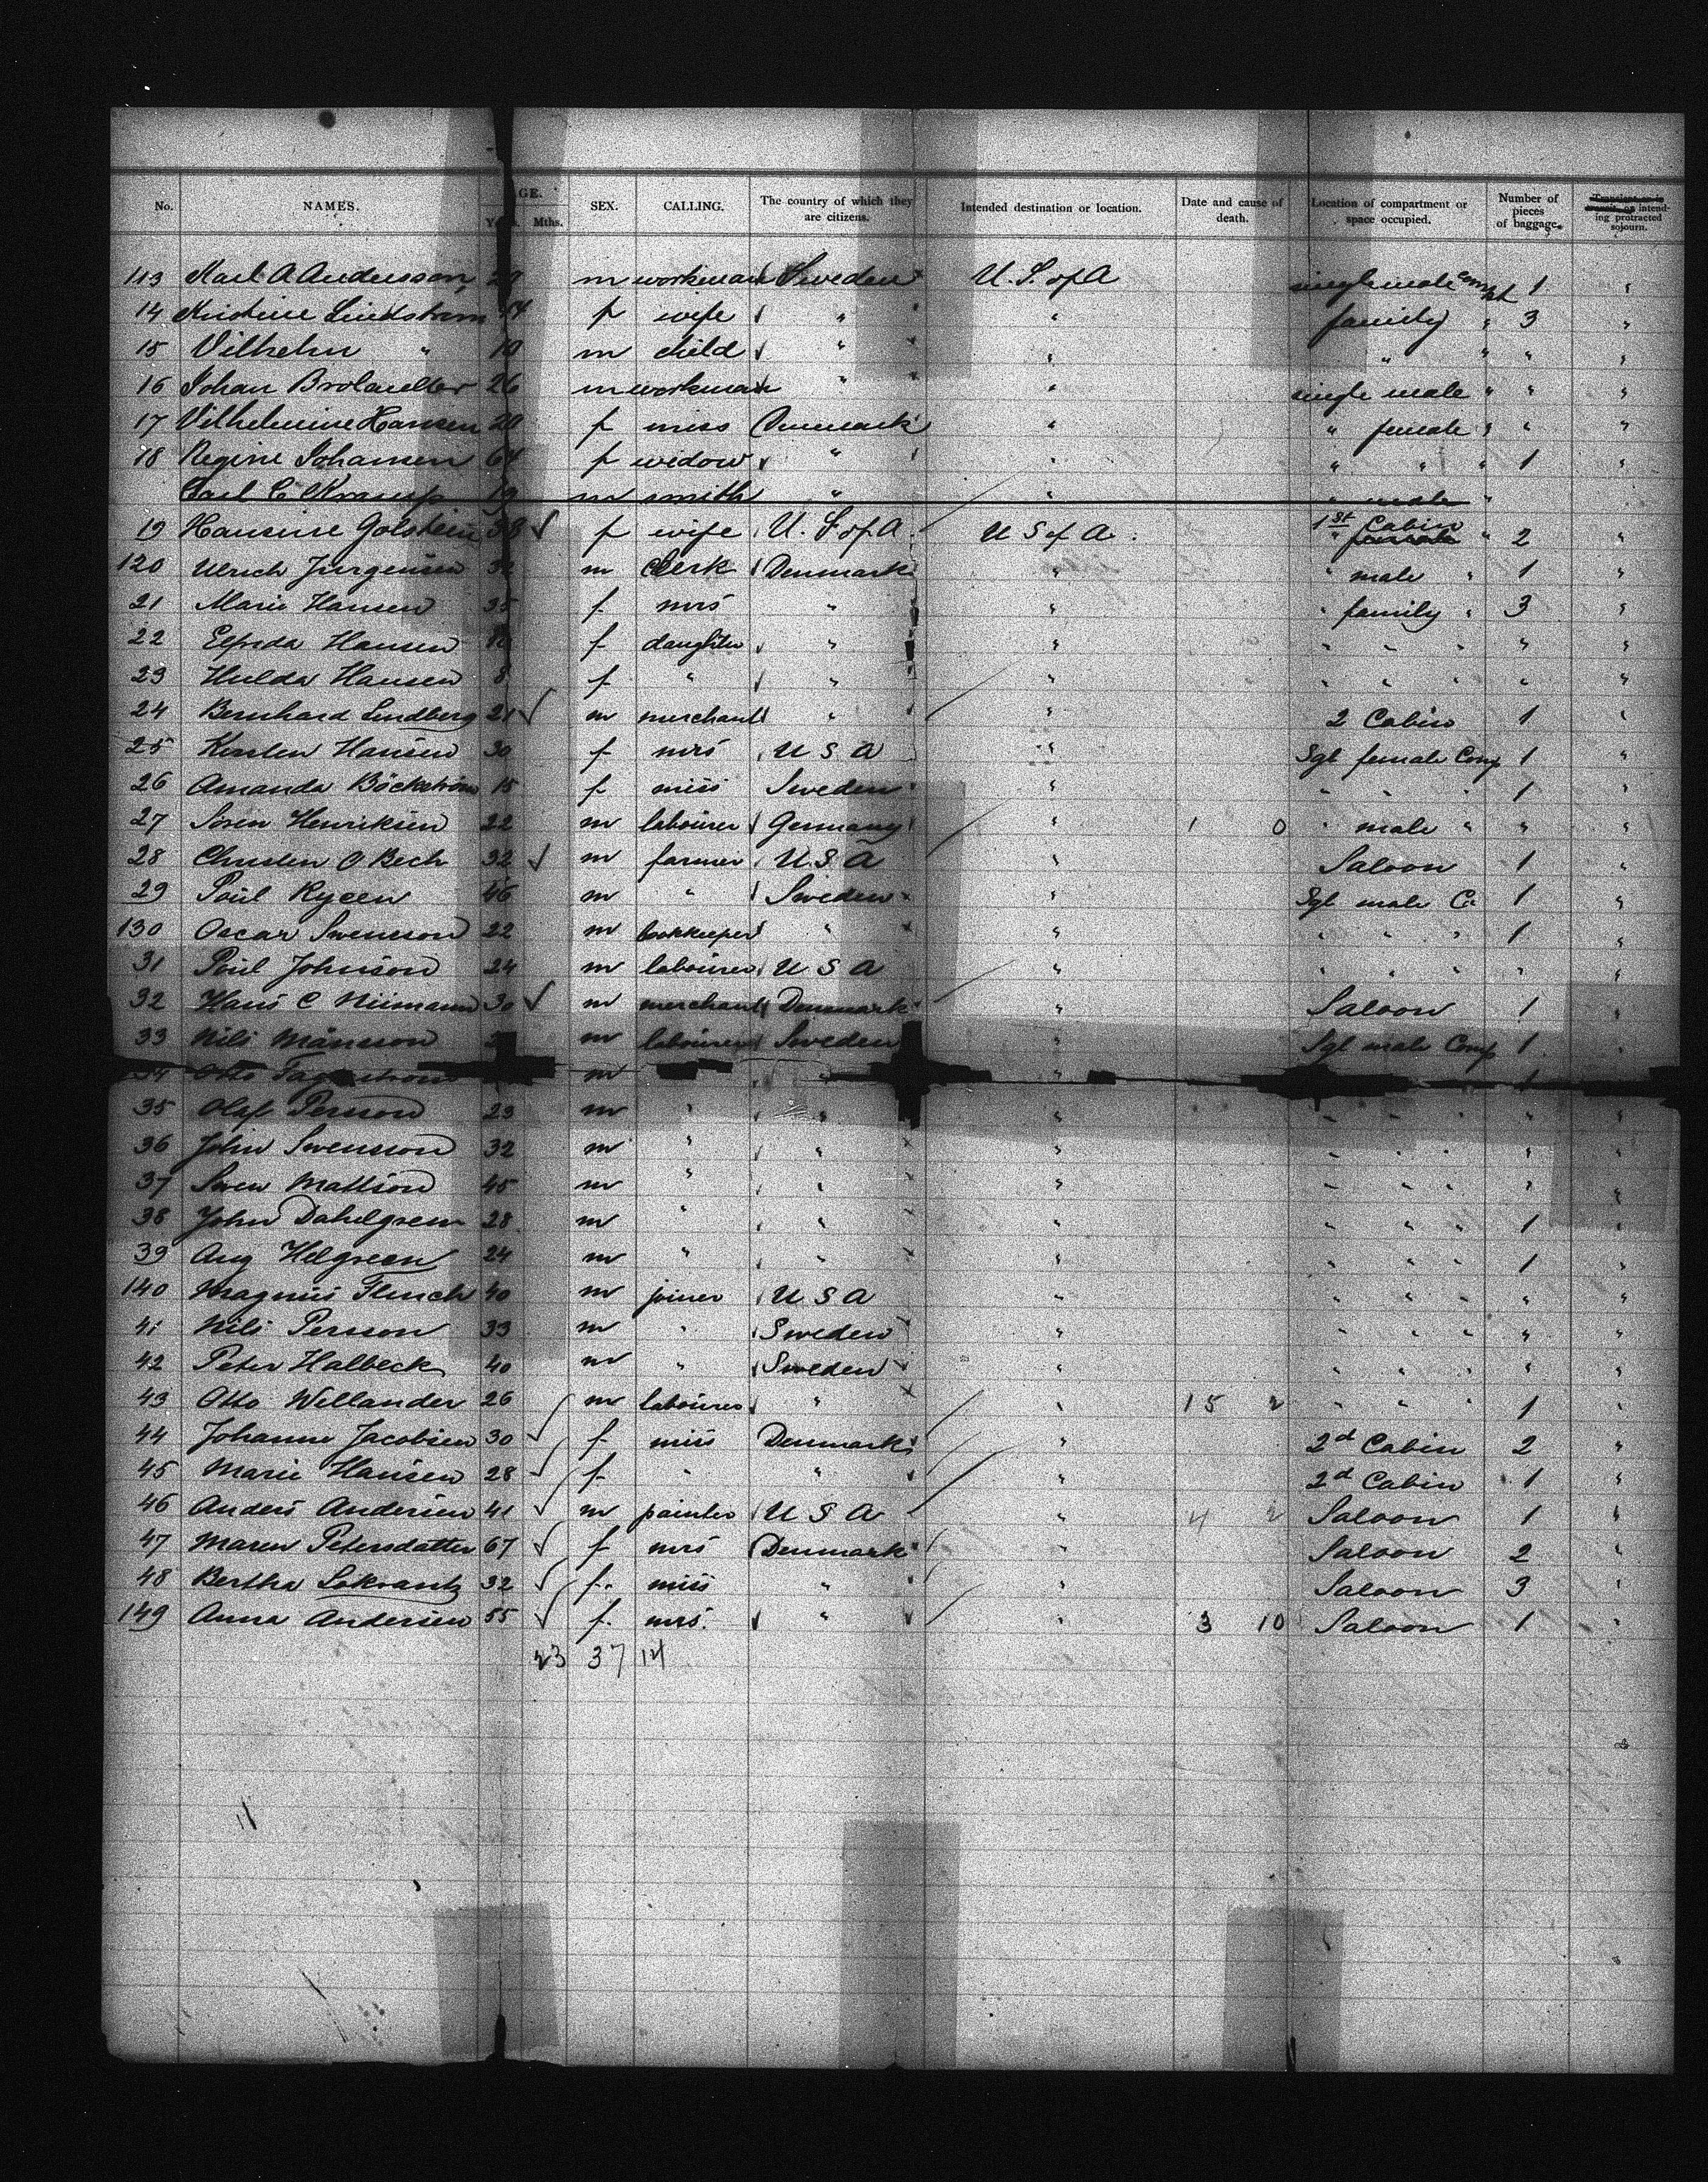 No. NAMES. AGE. Yrs. Mths. SEX. CALLING. The country of which they are citizens. Intended destination or location. Date and cause of death. Location of compartment or space occupied. Number of pieces of baggage. intending protracted sojourn.
113 Karl A Andersson m workman Sweden U. S. of A single male 1 "
14 Kristine Lindstrom f wife " " family " 3 "
15 Vilhelm " 10 m child " " " " " "
16 Johan 26 m workman " " single male " " "
17 Vilhelmine Hansen 20 f miss Denmark " " female " " "
18 Regine Johansen 64 f widow " " " " " 1 "
Carl C Krarup 19 m smith " " " male "
19 Hansine Golstein 38 ✓ f wife U. S. of A. U S of A. 1st Cabin female " 2 "
120 Ulrich Jurgensen 32 m Clerk Denmark " " male " 1 "
21 Marie Hansen 35 f mrs " " " family " 3 "
22 Elfreda Hansen f daughter " " " " " " "
23 Hulda Hansen 8 f " " " " " " " "
24 Bernhard Lindberg 21 ✓ m merchant " " 2 Cabin 1 "
25 Hansen 30 f mrs U S A " Sgl female Comp 1 "
26 Amanda Böckström 15 f miss Sweden " " " " 1 "
27 Sören Henriksen 22 m labourer Germany " 1 0 " male " " "
28 Christen O Bech 32 ✓ m farmer U. S. A " Saloon 1 "
29 Paul Rycen 46 m " Sweden " Sgl male Co 1 "
130 Oscar Swenson 22 m bookkeeper " " " " " 1 "
31 Paul Johnson 24 m labourer U S A " " " " " "
32 Hans C Niimann 30 ✓ m merchant Denmark " Saloon 1 "
33 Nils Månsson m labourer Sweden " Sgl male Comp 1 "
34 Otto m " 1
35 Olaf Persson 23 m " " " " " " " "
36 John Swensson 32 m " " " " " " " "
37 Swen Mattson 45 m " " " " " " " "
38 John Dahlgren 28 m " " " " " " 1 "
39 Aug Helgreen 24 m " " " " " " 1 "
140 Magnus Flinch 40 m joiner U S A " " " " " "
41 Nils Persson 33 m " Sweden " " " " " "
42 Peter Halbeck 40 m " Sweden " " " " " "
43 Otto Wellander 26 m labourer " " 15 2 " " " 1 "
44 Johanne Jacobsen 30 ✓ f miss Denmark " 2d Cabin 2 "
45 Marie Hansen 28 ✓ f " " " 2d Cabin 1 "
46 Anders Andersen 41 ✓ m painter U S A " 4 2 Saloon 1 "
47 Maren Petersdatter 67 ✓ f mrs Denmark " Saloon 2 "
48 Bertha Lokrantz 32 ✓ f. miss " " Saloon 3 "
149 Anna Andersen 55 ✓ f. mrs. " " 3 10 Saloon 1 "
23 37 14